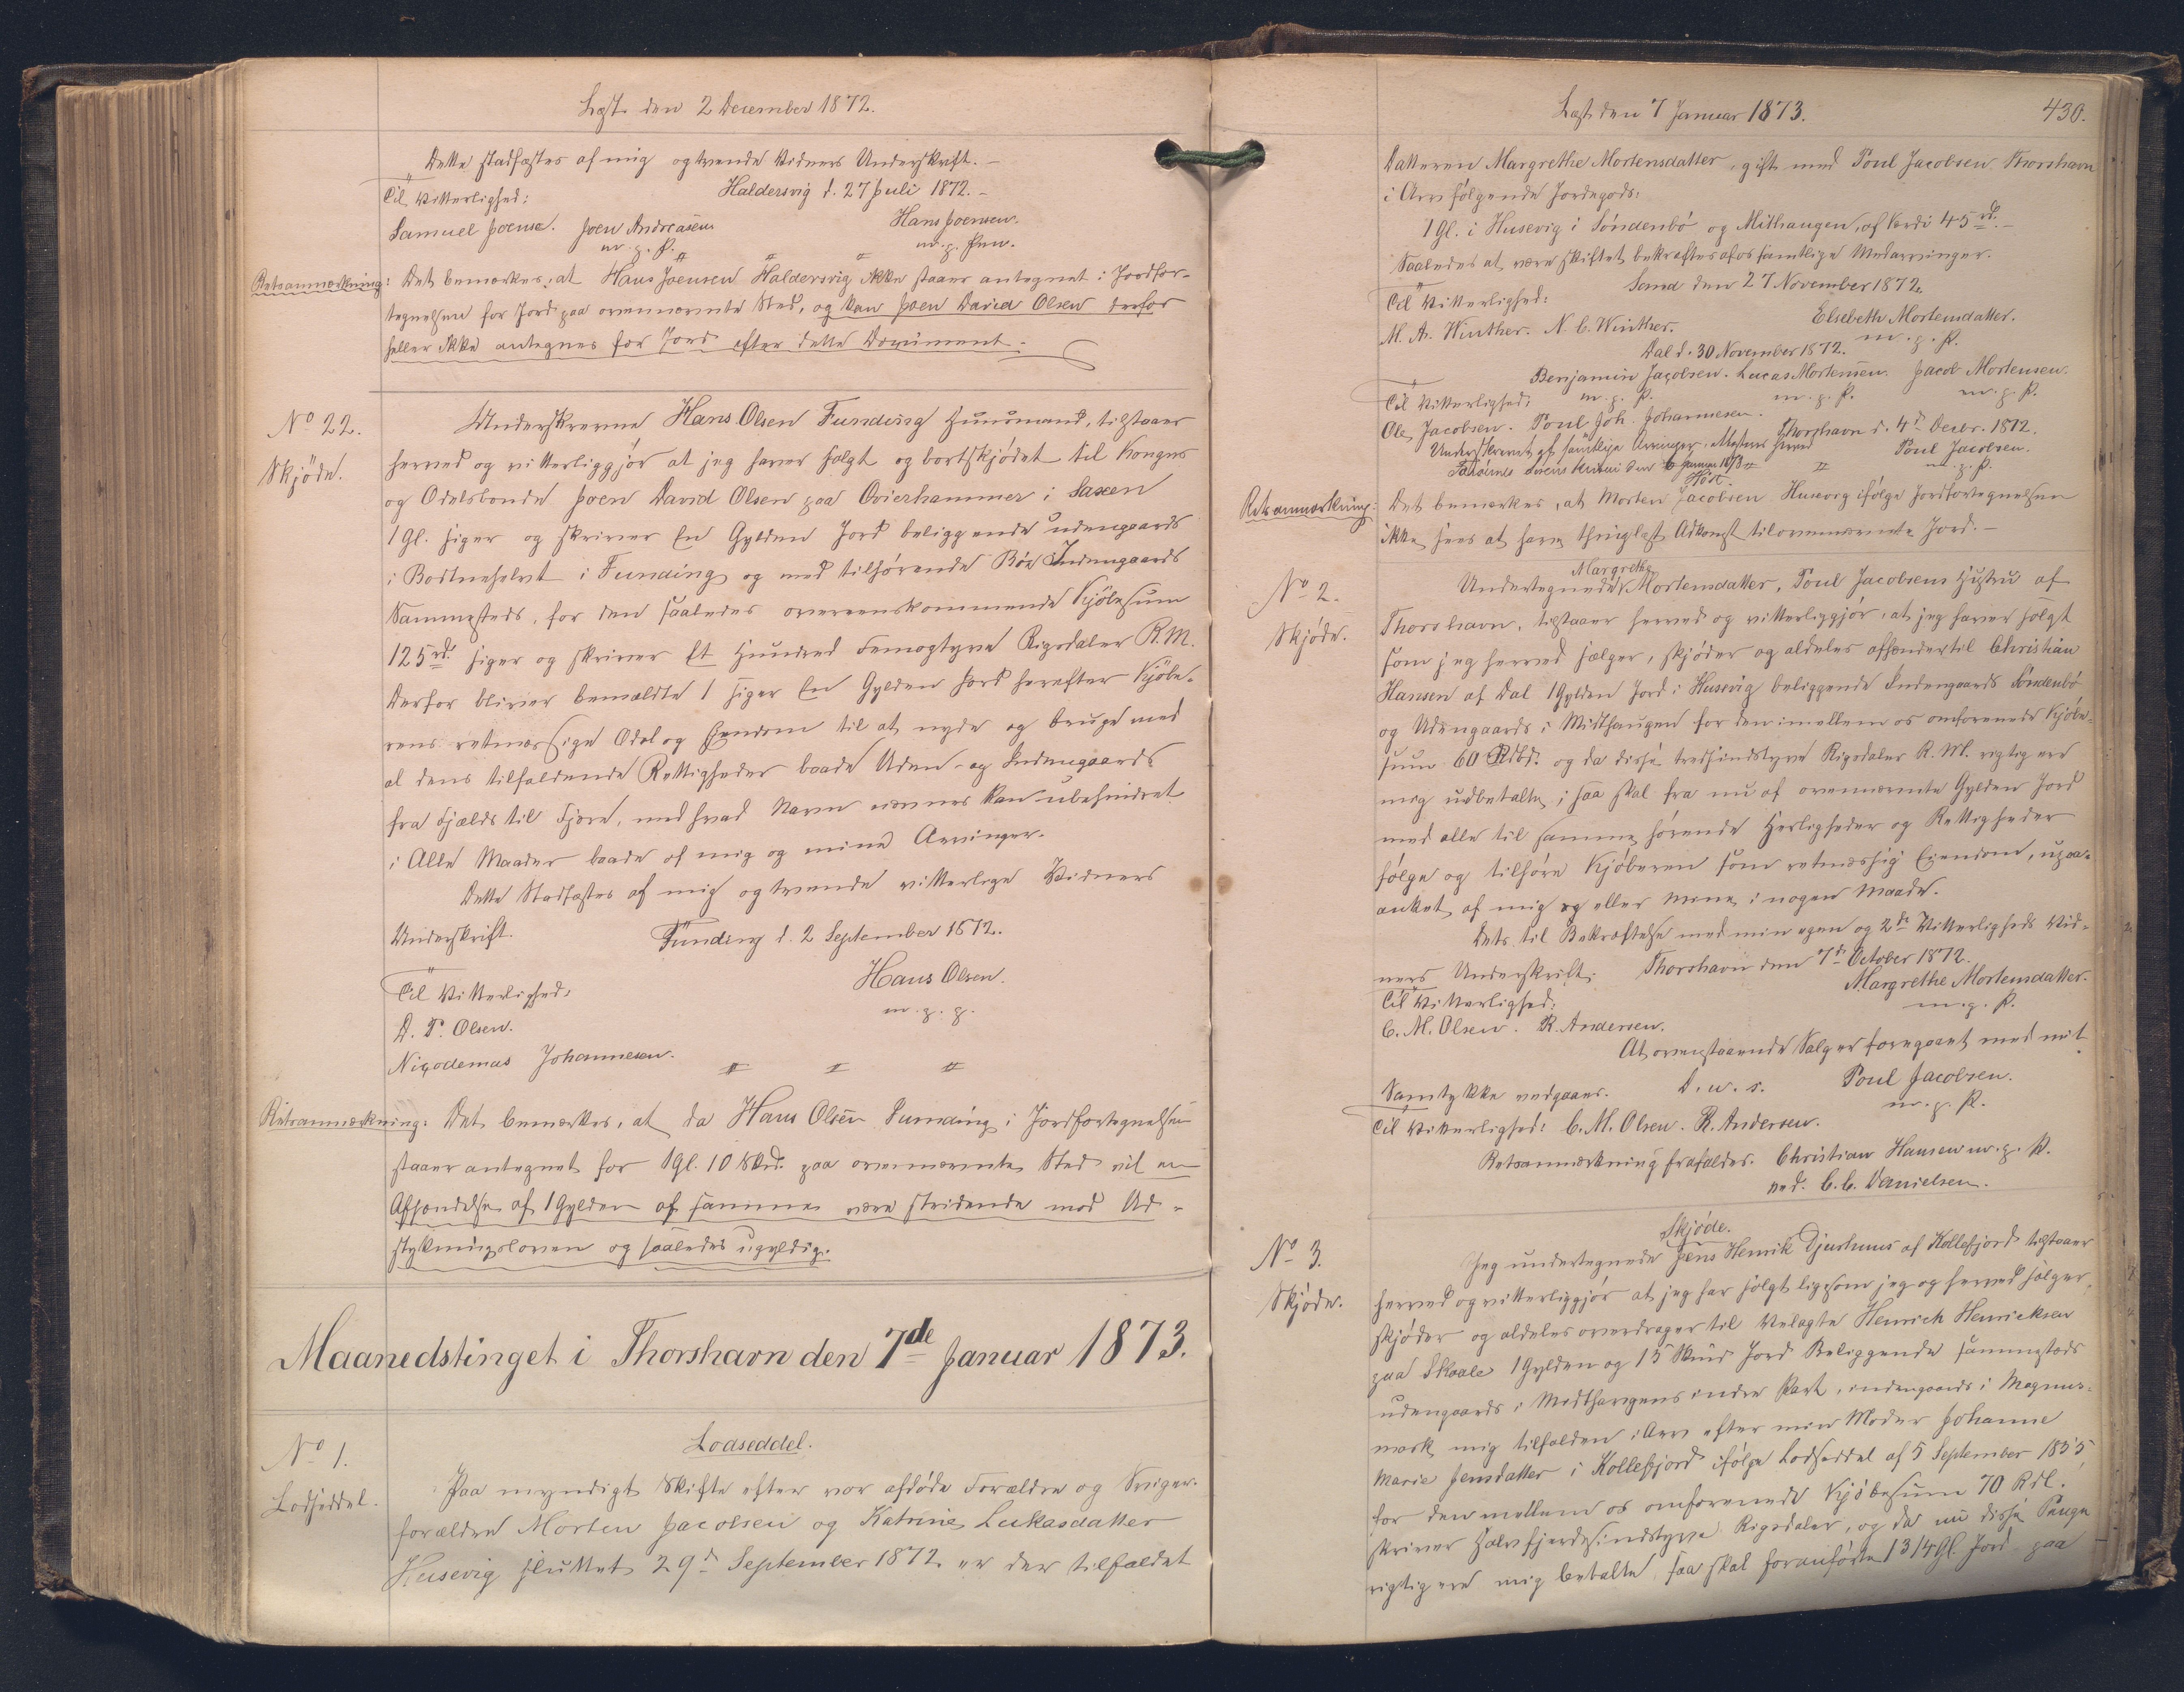 Læst den 2 December 1872.
Dette stadfæstes af mig og tvende Vidners Underskrift. –
Til Vitterlighed: Haldersvig d. 27 Juli 1872. –
Samuel Joensen. Joen Andreasen Hans Joensen.
m. p. P. m. p. Pen.
Retsanmærkning: Det bemærkes, at Hans Joensen Haldersvig ikke staaer antegnet i Jordfor-
tegnelsen for Jord paa ovennævnte Sted, og kan Joen David Olsen derfor
heller ikke antegnes for Jord efter dette Document. –
No 22.
Skjøde.
Underskrevne Hans Olsen Funding Huusmand, tilstaaer
herved og vitterliggjør at jeg haver solgt og bortskjødet til Konges
og Odelsbonde Joen David Olsen paa Ovierhammer i Saxen
1 Gl. siger og skriver En Gylden Jord beliggende udengaards
i Bodtneholvt i Funding og med tilhørende Bøe Indengaards
Sammesteds, for den saaledes overeenskommende Kjøbesum
125 rd. siger og skriver Et Hundred Femogtyve Rigsdaler R. M.
Derfor bliver bemældte 1 siger En Gylden Jord herefter Kjøbe-
rens retmæssige Odel og Eiendom til at nyde og bruge med
al dens tilfaldende Rettigheder baade Uden- og Indengaards
fra Fjælds til Fjære, med hvad Navn nævnes kan ubehindret
i Alle Maader baade af mig og mine Arvinger.
Dette Stadfæstes af mig og tvende vitterlige Vidners
Underskrift. Funding d. 2 September 1872.
Til Vitterlighed: Hans Olsen.
D. P. Olsen. m. p. p.
Nicodemus Johannesen.
Retsanmærkning: Det bemærkes, at da Hans Olsen Funding i Jordfortegnelsen
staaer antegnet for 1 Gl. 10 Skd. paa ovennævnte Sted vil en
Afhændelse af 1 Gylden af samme være stridende mod Ud-
stykningsloven og saaledes ugyldig.
Maanedstinget i Thorshavn den 7de Januar 1873.
No 1.
Lodseddel.
Lodseddel.
Paa myndigt Skifte efter vor afdøde Forældre og Sviger-
forældre Morten Jacobsen og Katrine Lukasdatter
Husevig sluttet 29de September 1872 er der tilfaldet
Læst den 7 Januar 1873. 430.
Datteren Margrethe Mortensdatter, gift med Poul Jacobsen Thorshavn
i Arv følgende Jordegods:
1 Gl. i Husevig i Søndenbø og Midhaugen, af Værdi 45 rd. –
Saaledes at være skiftet bekræftes af os samtlige Medarvinger.
Sand den 27 November 1872.
Til Vitterlighed: Elsebeth Mortensdatter.
M. A. Winther. N. C. Winther. m. p. P.
Dal d. 30 November 1872.
Benjamin Jacobsen. Lucas Mortensen. Jacob Mortensen.
Til Vitterlighed: m. p. P. m. p. P. m. p. P.
Ole Jacobsen. Poul Joh. Johannesen. Thorshavn d. 4de Decbr. 1872.
Underskrevet af samtlige Arvinger Attesteres herved Poul Jacobsen.
Færøernes Sorenskriveri den 6 Januar 1873 m. p. P.
Høst.
Retsanmærkning: Det bemærkes, at Morten Jacobsen Husevig ifølge Jordfortegnelsen
ikke sees at have thinglæst Adkomst til ovennævnte Jord. –
No 2.
Skjøde.
Undertegnede Margrethe Mortensdatter, Poul Jacobsens Hustru af
Thorshavn, tilstaaer herved og vitterliggjør, at jeg haver solgt
som jeg herved sælger, skjøder og aldeles afhænder til Christian
Hansen af Dal 1 Gylden Jord i Husevig beliggende Indengaards Søndenbø
og Udengaards i Midthaugen for den imellem os omforenede Kjøbe-
sum 60 Rbd. og da disse tredsindstyve Rigsdaler R. M. rigtig ere
mig udbetalte, saa skal fra nu af ovennævnte Gylden Jord
med alle til samme hørende Herligheder og Rettigheder
følge og tilhøre Kjøberen som retmæssig Eiendom, upaa-
anket af mig og eller Mine i nogen Maade.
Dets til Bekræftelse med min egen og 2de Vitterligheds Vid-
ners Underskrift. Thorshavn den 7de October 1872.
Til Vitterlighed: Margrethe Mortensdatter.
C. M. Olsen. R. Andersen. m. p. P.
At ovenstaaende Salg er foregaaet med mit
Samtykke vedgaaes. D. u. s. Poul Jacobsen.
m. p. P.
Til Vitterlighed: C. M. Olsen. R. Andersen.
Retsanmærkning frafaldes. Christian Hansen m. p. P.
ved: C. C. Danielsen.
No 3.
Skjøde.
Skjøde.
Jeg undertegnede Jens Henrik Djurhuus af Kollefjord tilstaaer
herved og vitterliggjør at jeg har solgt ligesom jeg og herved sælger,
skjøder og aldeles overdrager til Velagte Henrich Henricksen
paa Skaale 1 Gylden og 15 Skind Jord Beliggende sammesteds
udengaards i Midthaugens indre Part, indengaards i Magnus-
mark, mig tilfalden i Arv efter min Moder Johanne
Marie Jensdatter i Kollefjord ifølge Lodseddel af 5 September 1855
for den mellem os omforenede Kjøbesum 70 Rdl.
skriver Halvfjerdesindstyve Rigsdaler, og da nu disse Penge
rigtig ere mig betalte saa skal foranførte 1 3/4 Gl. Jord paa